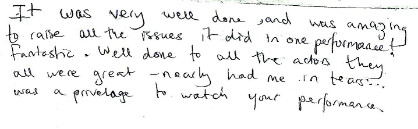 It was very well done, and was amazing
to raise all the issues it did in one performance!
Fantastic. Well done to all the actors they
all were great - nearly had me in tears!...
was a privelage to watch your performance.